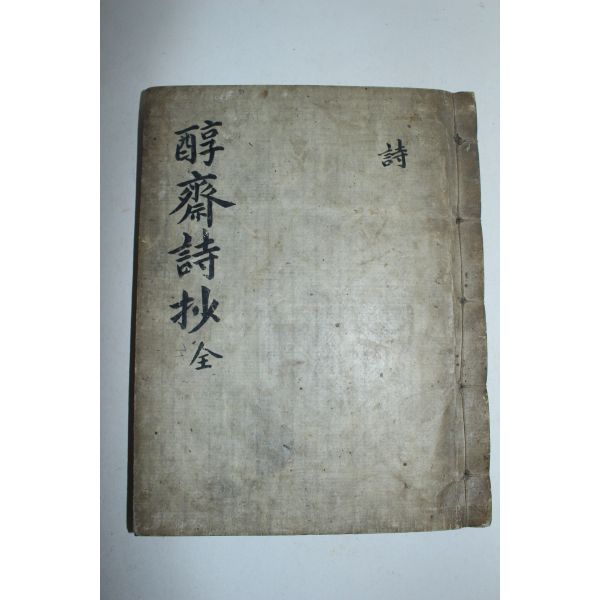 詩
醇齋詩抄 全